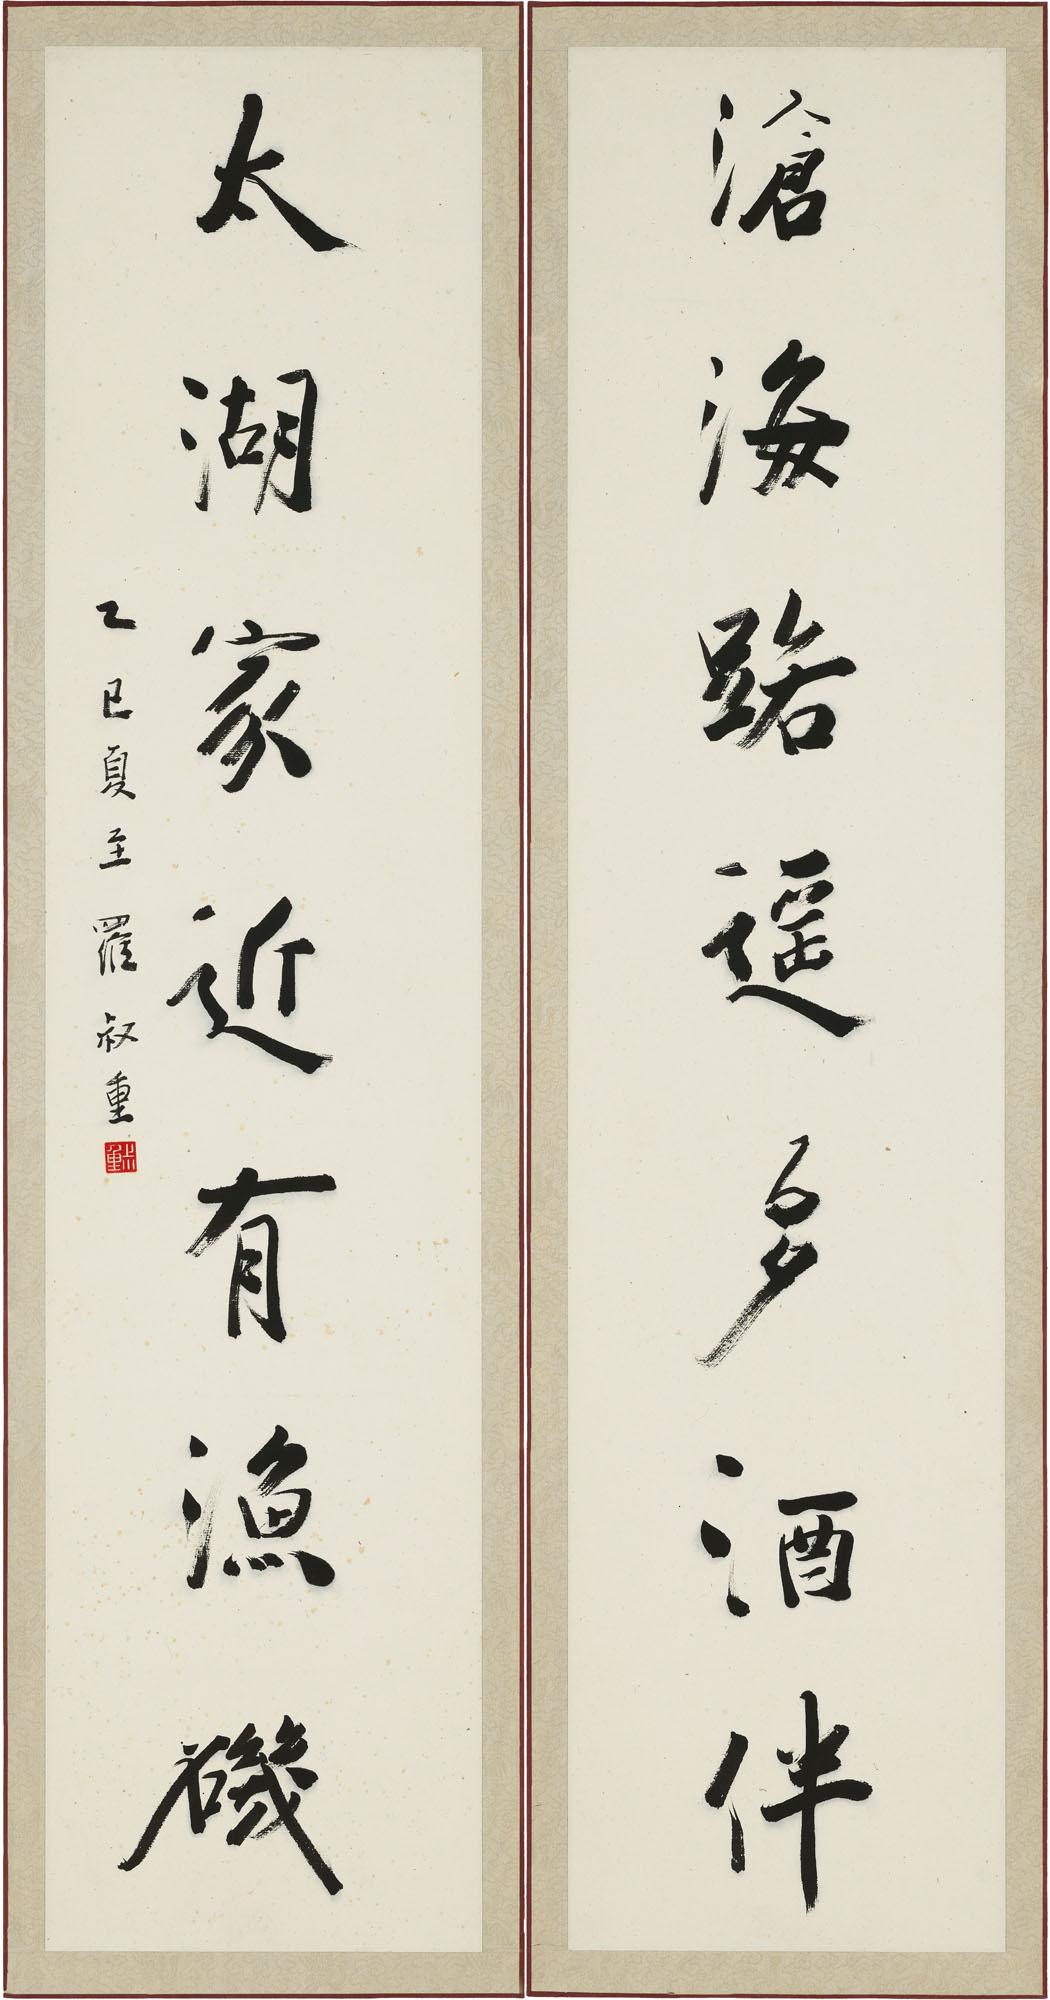 滄海路遥多酒伴
太湖家近有漁磯
乙巳夏至羅叔重